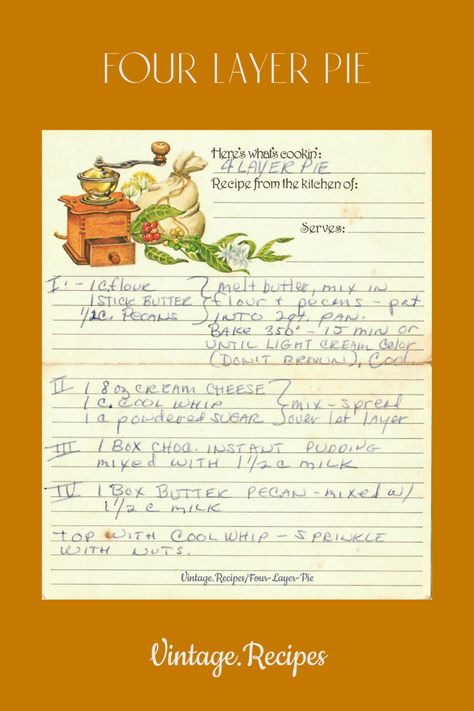 FOUR LAYER PIE
Here's what's cookin':
4 LAYER PIE
Recipe from the kitchen of:
Serves:
I: - 1 C. flour } melt butter, mix in
1 STICK BUTTER flour + pecans - pat
1/2 C. PECANS INTO 2 qt. PAN.
BAKE 350° - 15 MIN OR
UNTIL LIGHT CREAM COLOR
(DON'T BROWN), COOL.
II 1 8 oz CREAM CHEESE
1 C. COOL WHIP } mix - spread
1 C powdered SUGAR over 1st layer
III 1 BOX CHOC. INSTANT PUDDING
mixed WITH 1 1/2 C MILK
IV 1 BOX BUTTER PECAN - mixed w/
1 1/2 C MILK
TOP WITH COOL WHIP - SPRINKLE
WITH NUTS.
Vintage.Recipes/Four-Layer-Pie
Vintage.Recipes